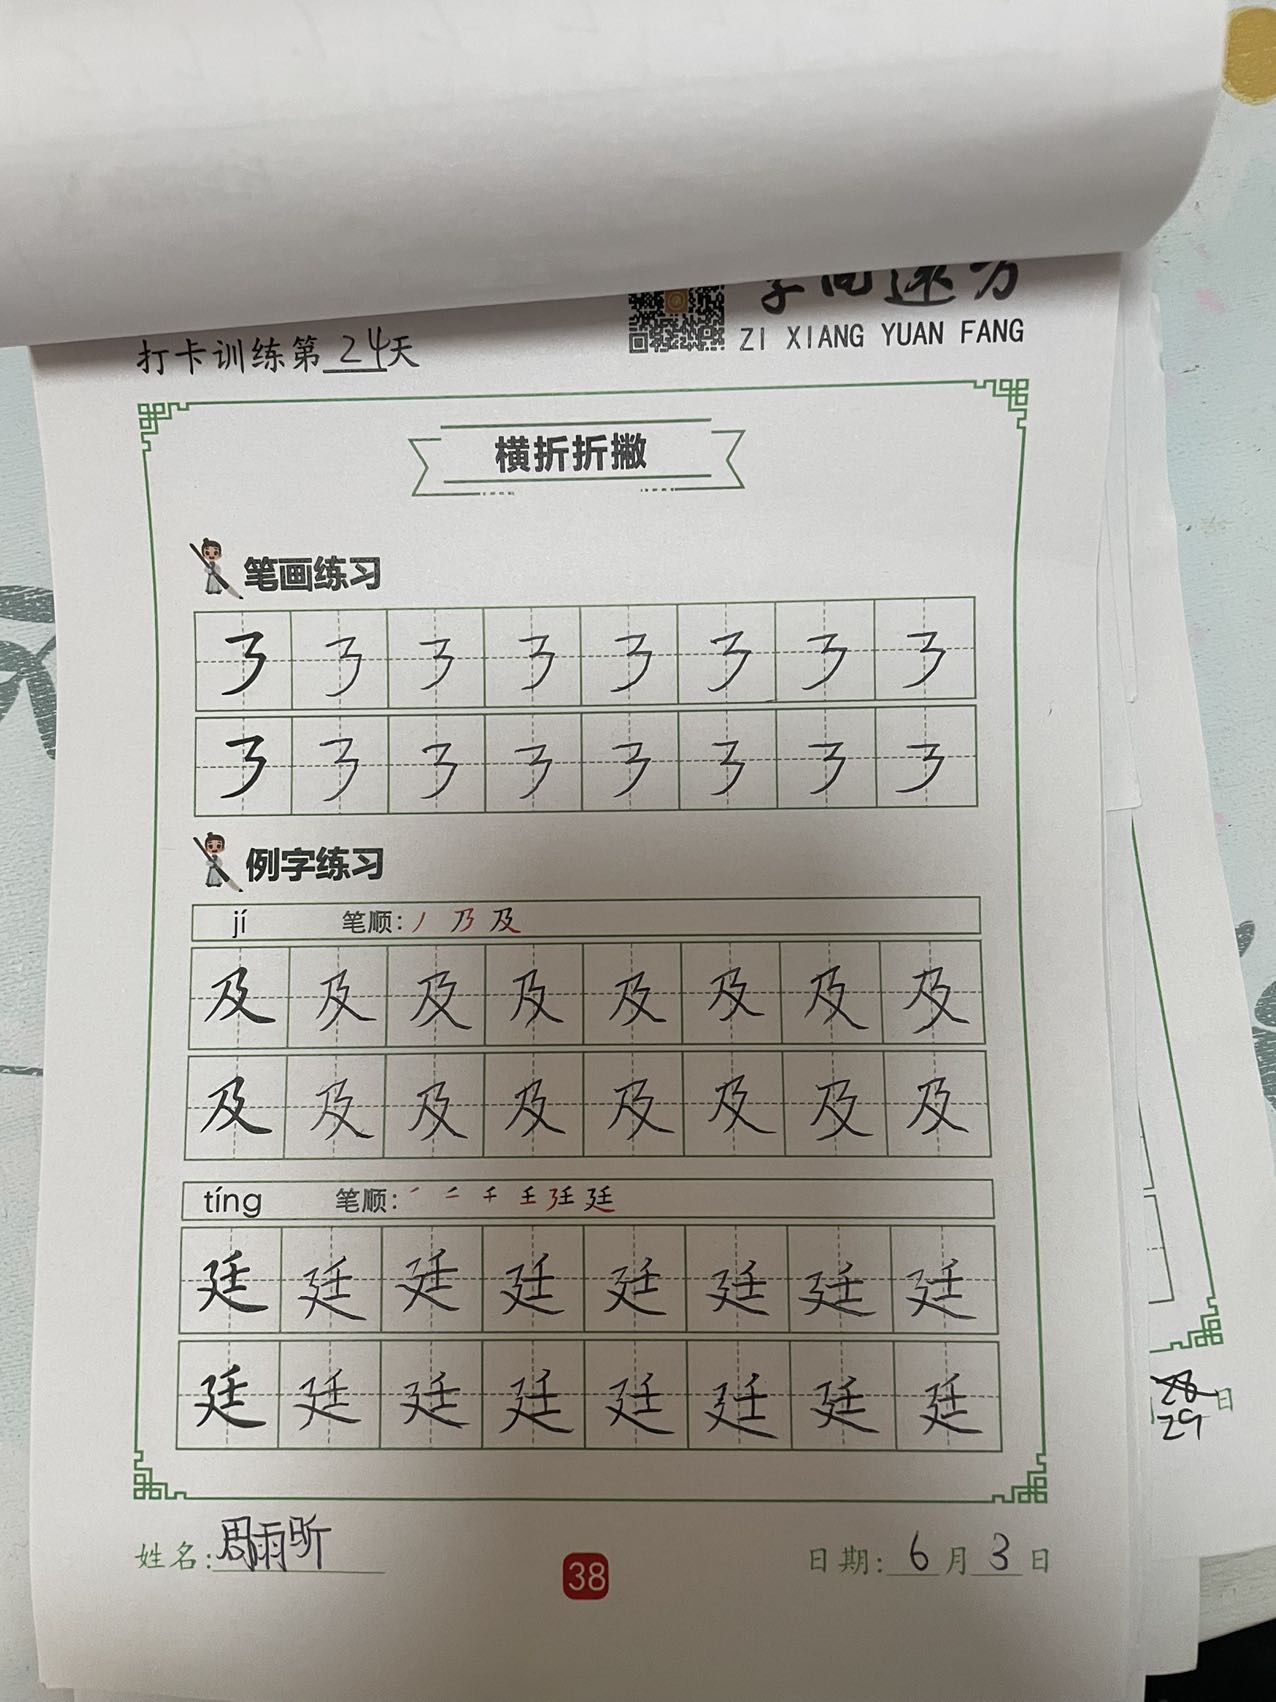 字向远方
ZI XIANG YUAN FANG
打卡训练第24天
横折折撇
笔画练习
㇋ ㇋ ㇋ ㇋ ㇋ ㇋ ㇋ ㇋
㇋ ㇋ ㇋ ㇋ ㇋ ㇋ ㇋ ㇋
例字练习
jí 笔顺: 丿 乃 及
及 及 及 及 及 及 及 及
及 及 及 及 及 及 及 及
tíng 笔顺: ㇒ 二 千 壬 廷 廷
廷 廷 廷 廷 廷 廷 廷 廷
廷 廷 廷 廷 廷 廷 廷 廷
29日
姓名:周雨昕
日期:6月3日
38